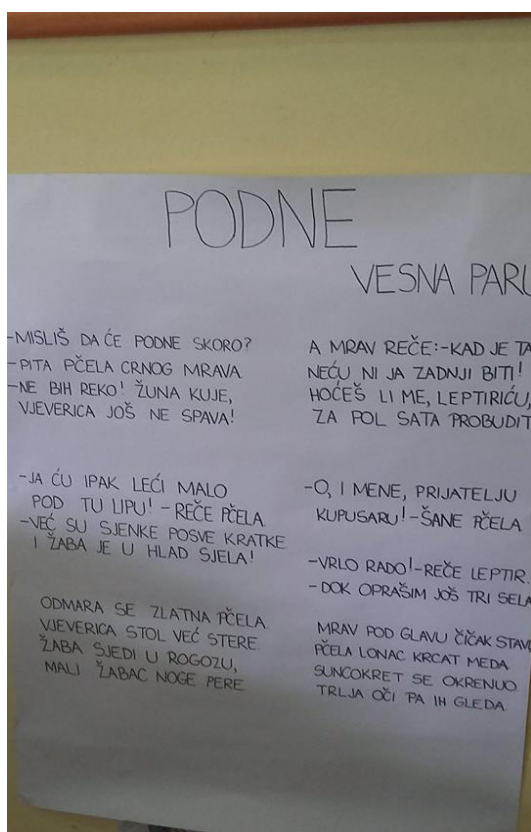 PODNE
VESNA PARU
-MISLIŠ DA ĆE PODNE SKORO?
-PITA PČELA CRNOG MRAVA
-NE BIH REKO! ŽUNA KUJE,
VJEVERICA JOŠ NE SPAVA!
-JA ĆU IPAK LEĆI MALO
POD TU LIPU! -REČE PČELA
-VEĆ SU SJENKE POSVE KRATKE
I ŽABA JE U HLAD SJELA!
ODMARA SE ZLATNA PČELA
VJEVERICA STOL VEĆ STERE
ŽABA SJEDI U ROGOZU,
MALI ŽABAC NOGE PERE
A MRAV REČE:-KAD JE TA
NEĆU NI JA ZADNJI BITI!
HOĆEŠ LI ME, LEPTIRIĆU,
ZA POL SATA PROBUDIT
-O, I MENE, PRIJATELJU
KUPUSARU!-ŠANE PČELA
-VRLO RADO!-REČE LEPTIR
-DOK OPRAŠIM JOŠ TRI SELA
MRAV POD GLAVU ČIČAK STAV
PČELA LONAC KRCAT MEDA
SUNCOKRET SE OKRENUO
TRLJA OČI PA IH GLEDA